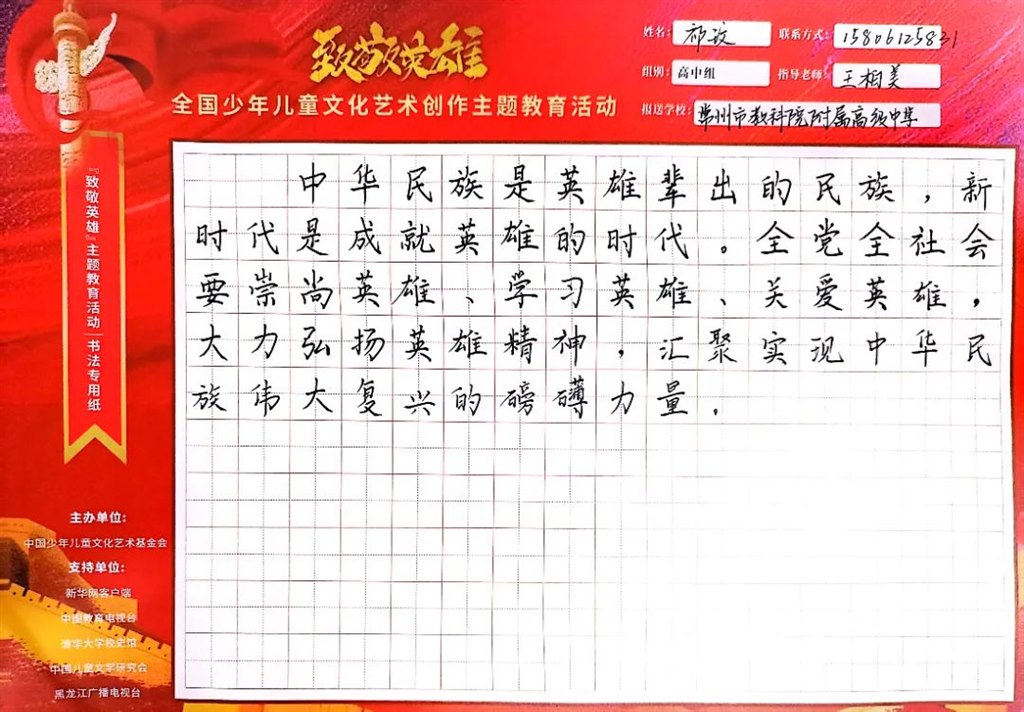 致敬英雄
全国少年儿童文化艺术创作主题教育活动
姓名: 祁玟
联系方式: 15806125831
组别: 高中组
指导老师: 王相美
报送学校: 常州市教科院附属高级中学
『致敬英雄』主题教育活动 书法专用纸
中华民族是英雄辈出的民族，新
时代是成就英雄的时代。全党全社会
要崇尚英雄、学习英雄、关爱英雄，
大力弘扬英雄精神，汇聚实现中华民
族伟大复兴的磅礴力量.
主办单位:
中国少年儿童文化艺术基金会
支持单位:
新华网客户端
中国教育电视台
清华大学校史馆
中国儿童文学研究会
黑龙江广播电视台